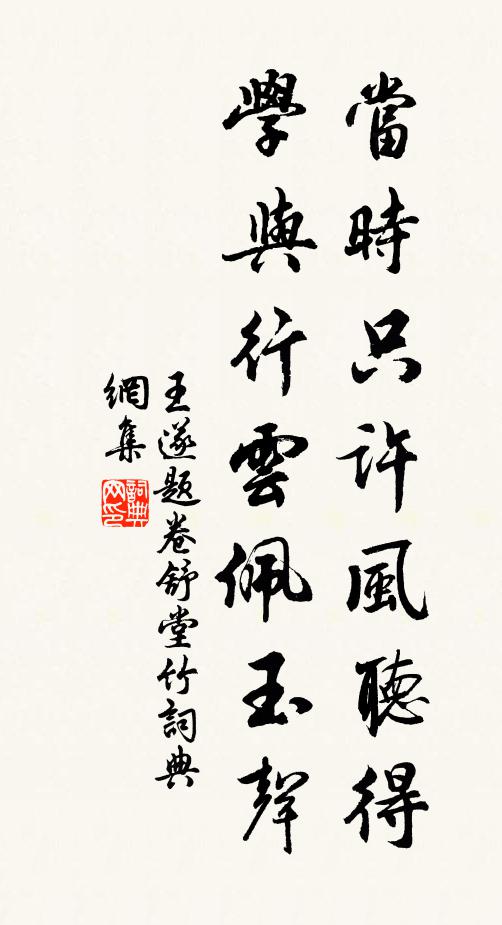 當時只許風聽得
學與行雲佩玉聲
王遂題卷舒堂竹詞典
網集
詞典網印